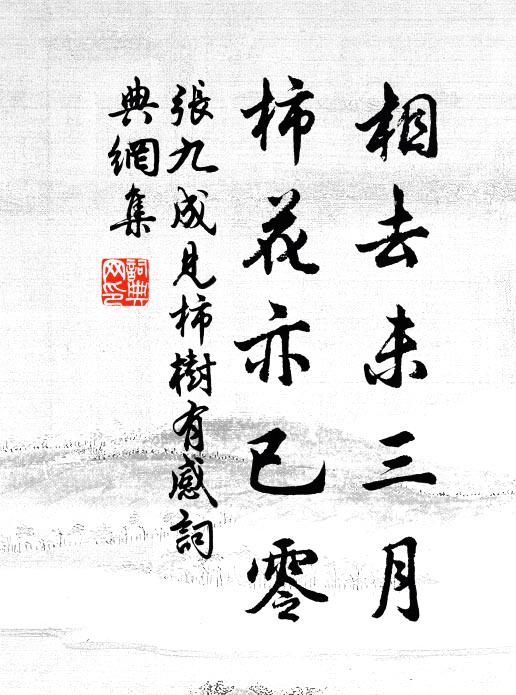 相去未三月
柿花亦已零
張九成見柿樹有感詞
典網集
詞典网印